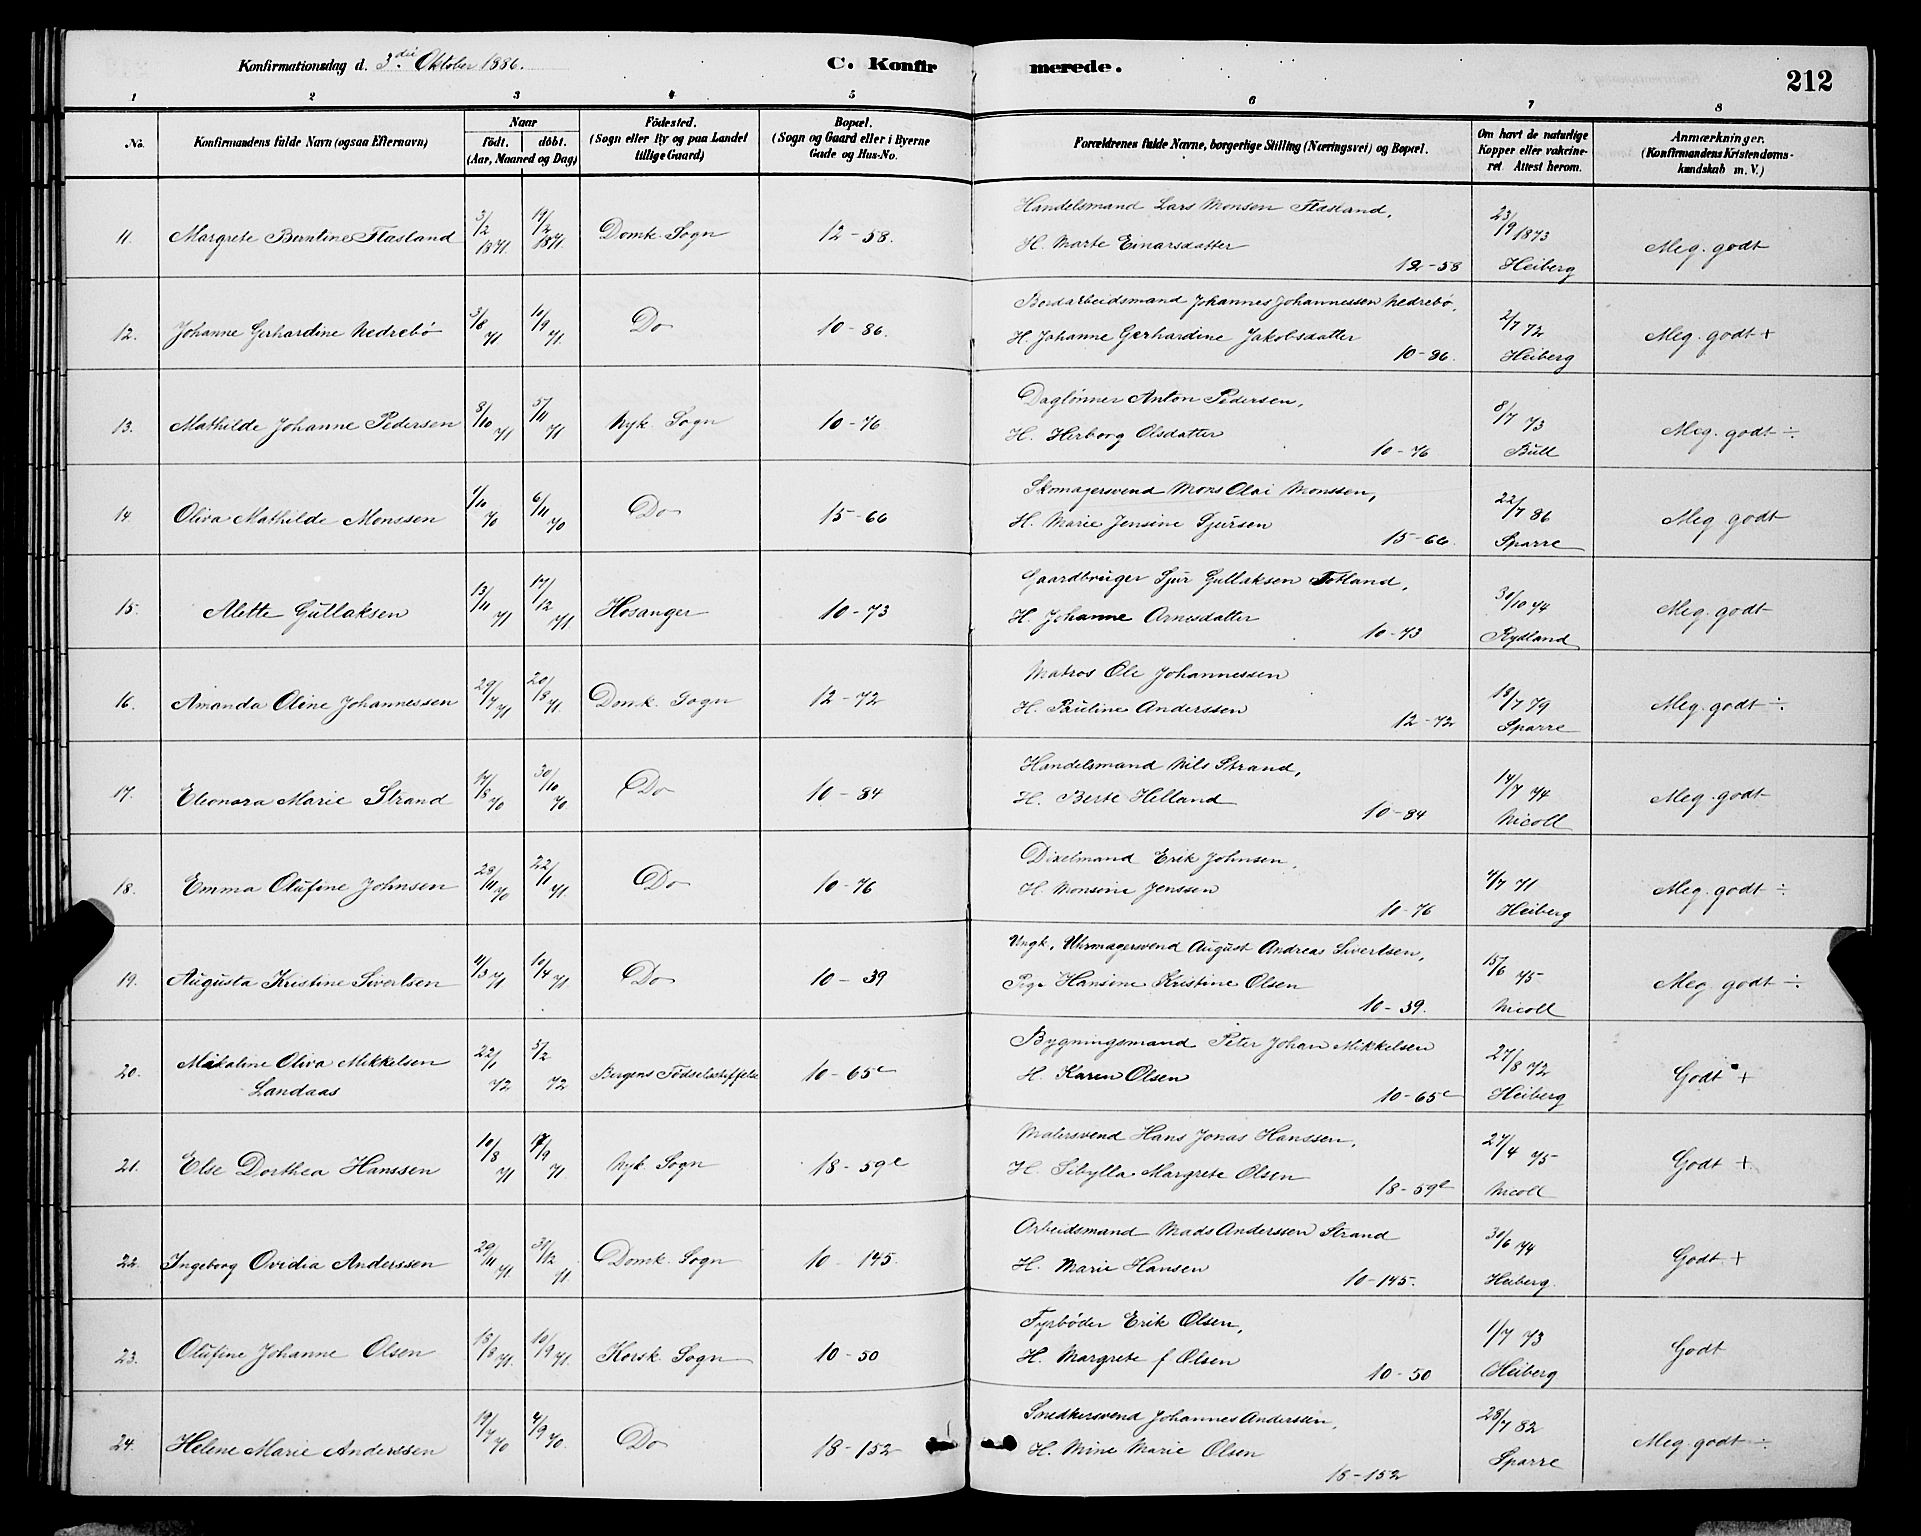 Konfirmationsdag d. 3die Oktober 1886.
C. Konfirmerede.
212
1 2 3 4 5 6 7 8
No.
Konfirmandens fulde Navn (ogsaa Efternavn)
Naar
födt. döbt.
(Aar, Maaned og Dag)
Födested.
(Sogn eller By og paa Landet
tillige Gaard)
Bopæl.
(Sogn og Gaard eller i Byerne
Gade og Hus-No.
Forældrenes fulde Navne, borgerlige Stilling (Næringsvei) og Bopæl.
Om havt de naturlige
Kopper eller vakcine-
ret Attest herom.
Anmærkninger.
(Konfirmandens Kristendoms-
kundskab m. V.)
11. Margrete Berntine Flasland 3/2 1871. 19/2 1871. Domk. Sogn 12-58.
Handelsmand Lars Monsen Flasland,
H. Marte Einarsdatter
12-58
23/9 1873
Heiberg
Meg. godt
12. Johanne Gerhardine Nedrebö 3/8 71 10/9 71. Do 10-86.
Bordarbeidsmand Johannes Johannessen Nedrebö,
H. Johanne Gerhardine Jakobsdatter
10-86.
2/7 72
Heiberg
Meg. godt +
13. Mathilde Johanne Pedersen 8/10 71 5/11 71 Nyk. Sogn 10-76
Daglönner Anton Pedersen,
H. Herborg Olsdatter
10-76
8/7 73
Bull
Meg. godt ÷
14. Oliva Mathilde Monssen 1/10 70 6/11 70 Do 15-66
Skomagersvend Mons Olai Monssen,
H. Marie Jensine Sjursen
15-66.
22/7 86
Sparre
Meg. godt
15. Alette Gullaksen 13/11 71 17/12 71. Hosanger 10-73
Gaardbruger Sjur Gullaksen Totland,
H. Johanne Arnesdatter
10-73
30/10 74
Rydland
Meg. godt
16. Amanda Oline Johannessen 29/7 71 20/8 71. Domk. Sogn 12-72
Matros Ole Johannessen
H. Pauline Anderssen
12-72
18/7 79
Sparre
Meg. godt ÷
17. Eleonora Marie Strand 17/8 70 30/10 70. Do 10-84
Handelsmand Nils Strand,
H. Berte Helland
10-84
14/7 74
Nicoll
Meg. godt
18. Emma Olufine Johnsen 28/11 70 22/1 71. Do 10-76
Dixelmand Erik Johnsen,
H. Monsine Jenssen
10-76
4/7 71
Heiberg
Meg. godt ÷
19. Augusta Kristine Sivertsen 4/3 71 10/4 71 Do 10-39
Ungk. Uhrmagersvend August Andreas Sivertsen,
Pige Hansine Kristine Olsen
10-39.
15/6 75
Nicoll
Meg godt ÷
20. Mikaline Oliva Mikkelsen
Landaas
22/1 72 5/2 72 Bergens Födselsstiftelse 10-65c
Bygningsmand Peter Johan Mikkelsen
H. Karen Olsen
10-65c
27/8 72
Heiberg
Godt +
21. Else Dorthea Hanssen 10/8 71 17/9 71. Nyk. Sogn 18-59e
Malersvend Hans Jonas Hanssen,
H. Sibylla Margrete Olsen
18-59e
27/4 75
Nicoll
Godt +
22. Ingeborg Ovidia Anderssen 29/11 71. 31/12 71 Domk. Sogn 10-145.
Arbeidsmand Mads Anderssen Strand
H. Marie Hansen
10-145.
30/6 74
Heiberg.
Godt +
23. Olufine Johanne Olsen 13/8 71. 10/9 71. Korsk. Sogn 10-50
Fyrböder Erik Olsen,
H. Margrete f Olsen
10-50
1/7 73
Heiberg
Godt
24. Helene Marie Anderssen 19/7 70 4/9 70. Do 18-152
Snedkersvend Johannes Anderssen,
H. Mine Marie Olsen
18-152
28/7 82
Sparre
Meg godt ÷